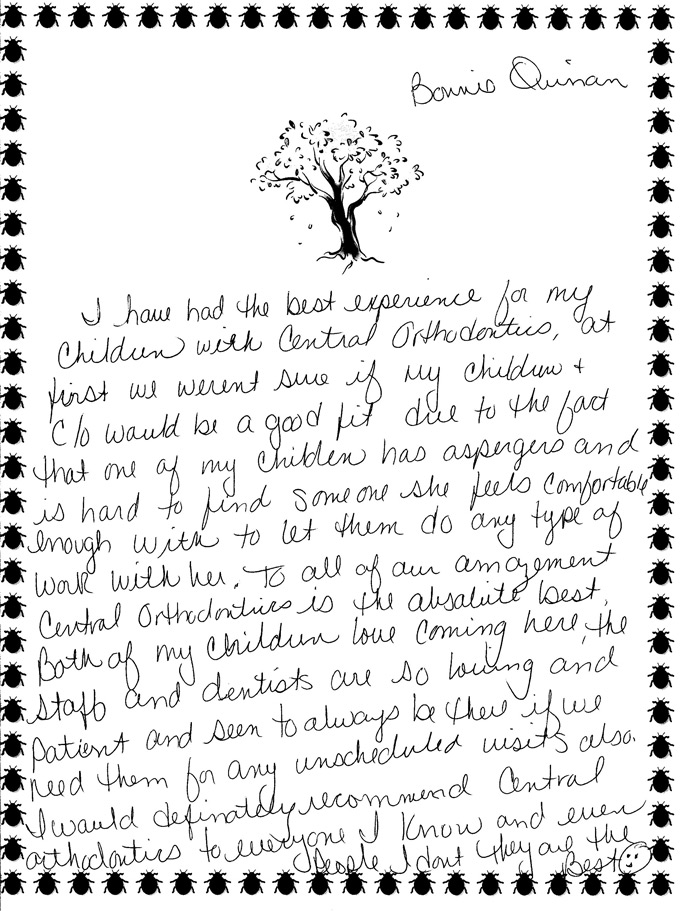 Bonnie Quinan
I have had the best experience for my
Children with Central Orthodontics, at
first we werent sure if my children +
C/O would be a good fit due to the fact
that one of my children has aspergers and
is hard to find someone she feels comfortable
enough with to let them do any type of
work with her. To all of our amazement
Central Orthodontics is the absolute best.
Both of my children love coming here, the
staff and dentists are so loving and
patient and seen to always be there if we
need them for any unscheduled visits also.
I would definately recommend Central
orthodontics to everyone I know and even
People I dont they are the
Best